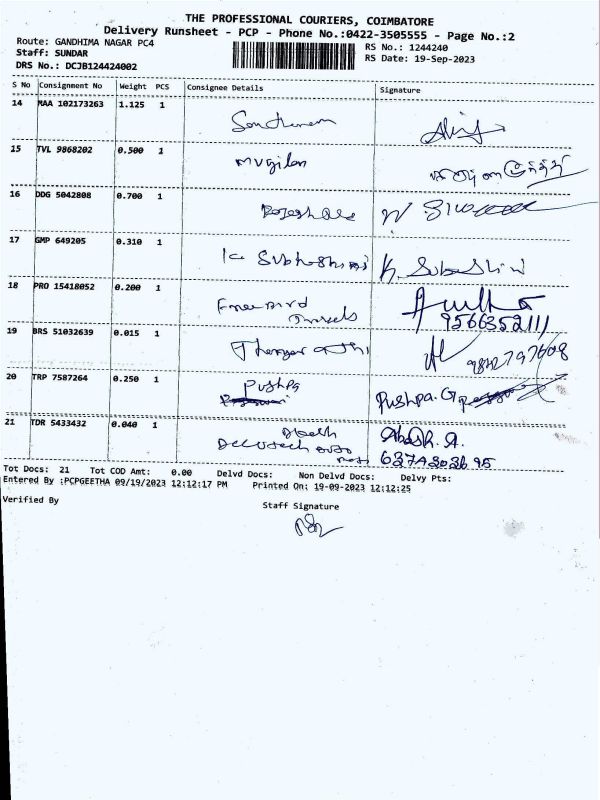 THE PROFESSIONAL COURIERS, COIMBATORE
Delivery Runsheet - PCP - Phone No.:0422-3505555 - Page No.:2
Route: GANDHIMA NAGAR PC4
RS No.: 1244240
Staff: SUNDAR
RS Date: 19-Sep-2023
DRS No.: DCJB124424002
S No Consignment No Weight PCS Consignee Details Signature
14 MAA 102173263 1.125 1
15 TVL 9868202 0.500 1 mugilan
16 DDG 5042808 0.700 1
17 GMP 649205 0.310 1 K. Subhashini K. Subashini
18 PRO 15418052 0.200 1 Free Bird
9566352111
19 BRS 51032639 0.015 1
20 TRP 7587264 0.250 1 Pushpa Pushpa. G
21 TDR 5433432 0.040 1 Abash. A.
Tot Docs: 21 Tot COD Amt: 0.00 Delvd Docs: Non Delvd Docs: Delvy Pts:
Entered By :PCPGEETHA 09/19/2023 12:12:17 PM Printed On: 19-09-2023 12:12:25
Verified By
Staff Signature